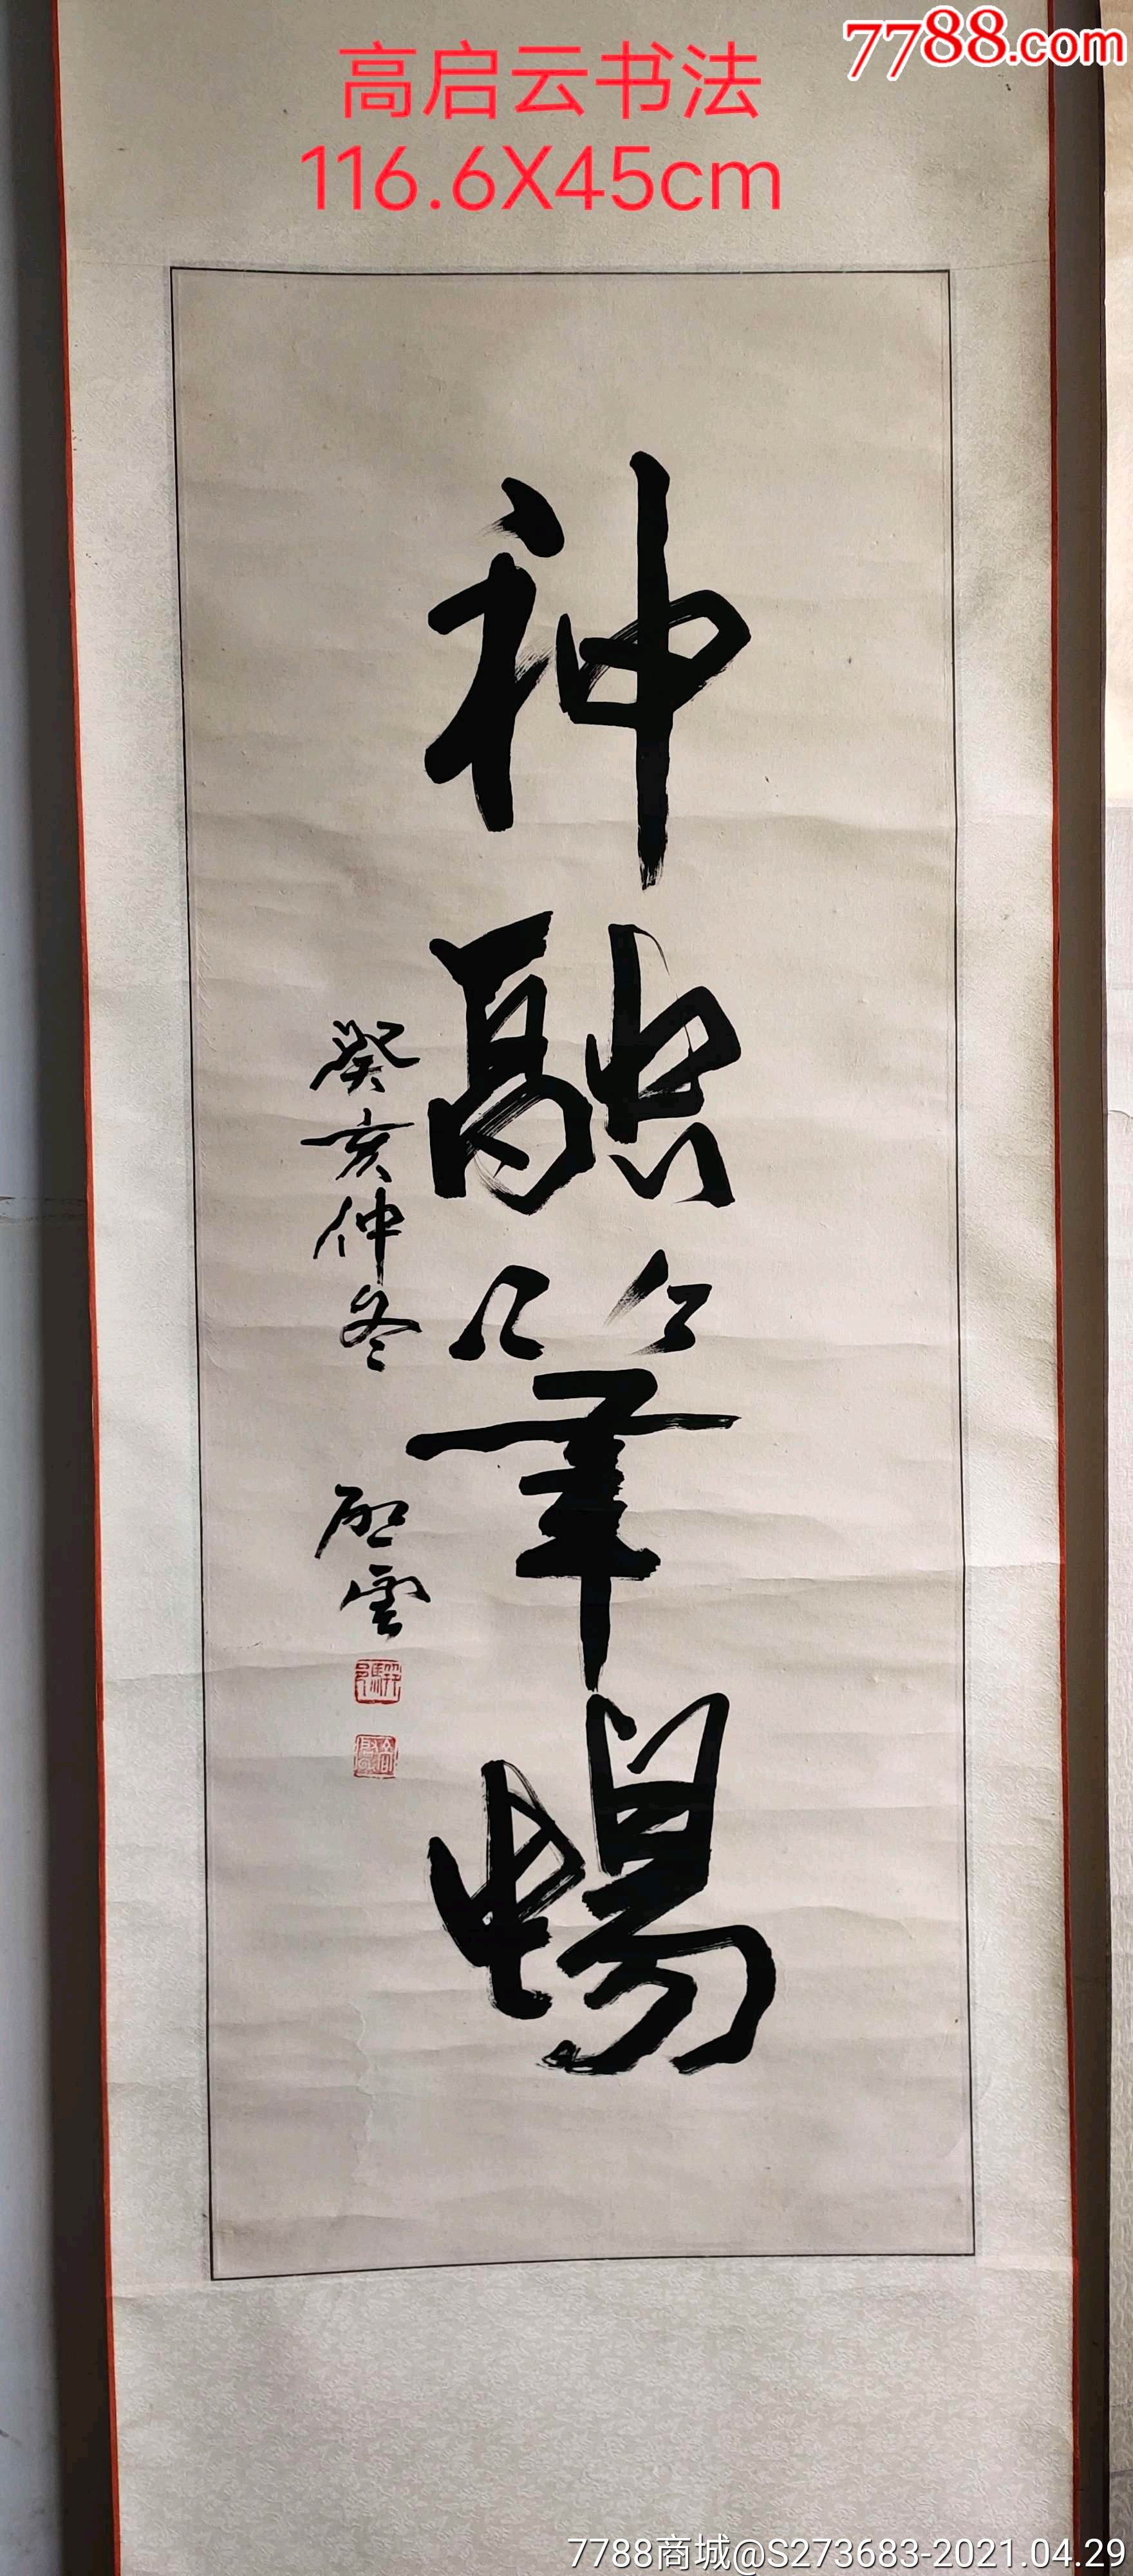 7788.com
高启云书法
116.6X45cm
神融筆暢
癸亥仲冬
啟雲
7788商城@S273683-2021.04.29